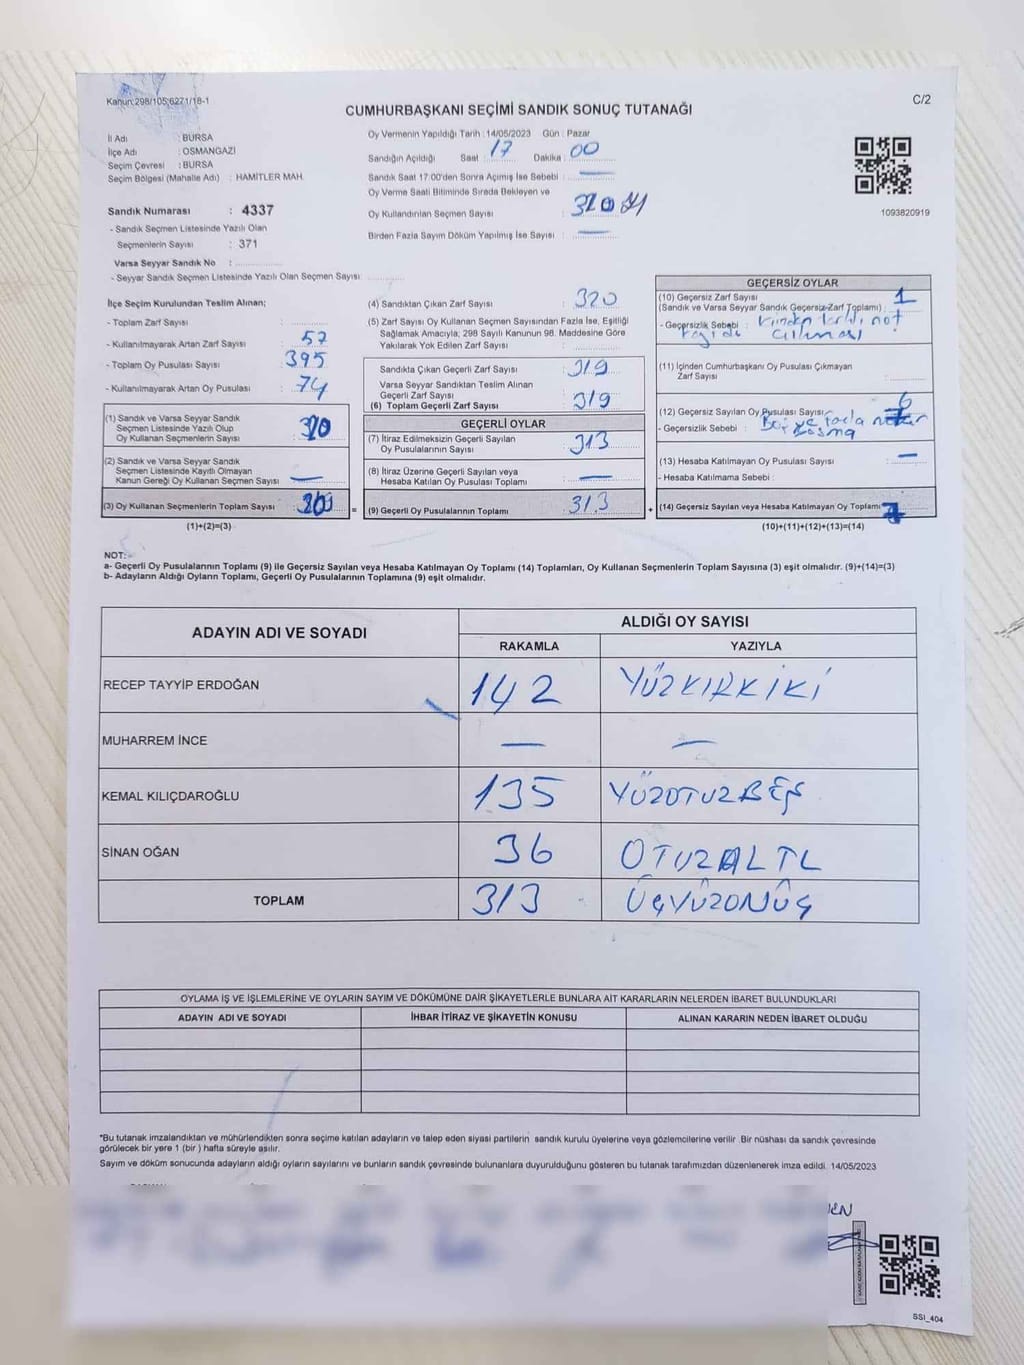 Kanun:298/105;6271/18-1
C/2
CUMHURBAŞKANI SEÇİMİ SANDIK SONUÇ TUTANAĞI
İl Adı : BURSA
İlçe Adı : OSMANGAZİ
Seçim Çevresi : BURSA
Seçim Bölgesi (Mahalle Adı) : HAMİTLER MAH.
Sandık Numarası : 4337
- Sandık Seçmen Listesinde Yazılı Olan
Seçmenlerin Sayısı : 371
Varsa Seyyar Sandık No :
- Seyyar Sandık Seçmen Listesinde Yazılı Olan Seçmen Sayısı
Oy Vermenin Yapıldığı Tarih :14/05/2023 Gün : Pazar
Sandığın Açıldığı Saat : 17 Dakika : 00
Sandık Saat 17:00'den Sonra Açımış İse Sebebi : —
Oy Verme Saati Bitiminde Sırada Bekleyen ve
Oy Kullandırılan Seçmen Sayısı
Birden Fazla Sayım Döküm Yapılmış İse Sayısı : —
1093820919
İlçe Seçim Kurulundan Teslim Alınan;
- Toplam Zarf Sayısı :
- Kullanılmayarak Artan Zarf Sayısı : 57
- Toplam Oy Pusulası Sayısı : 395
- Kullanılmayarak Artan Oy Pusulası : 74
(1) Sandık ve Varsa Seyyar Sandık
Seçmen Listesinde Yazılı Olup
Oy Kullanan Seçmenlerin Sayısı : 320
(2) Sandık ve Varsa Seyyar Sandık
Seçmen Listesinde Kayıtlı Olmayan
Kanun Gereği Oy Kullanan Seçmen Sayısı —
(3) Oy Kullanan Seçmenlerin Toplam Sayısı
(1)+(2)=(3)
=
(4) Sandıktan Çıkan Zarf Sayısı : 320
(5) Zarf Sayısı Oy Kullanan Seçmen Sayısından Fazla İse, Eşitliği
Sağlamak Amacıyla; 298 Sayılı Kanunun 98. Maddesine Göre
Yakılarak Yok Edilen Zarf Sayısı :
Sandıkta Çıkan Geçerli Zarf Sayısı : 319
Varsa Seyyar Sandıktan Teslim Alınan
Geçerli Zarf Sayısı
(6) Toplam Geçerli Zarf Sayısı : 319
GEÇERLİ OYLAR
(7) İtiraz Edilmeksizin Geçerli Sayılan
Oy Pusulalarının Sayısı : 313
(8) İtiraz Üzerine Geçerli Sayılan veya
Hesaba Katılan Oy Pusulası Toplamı : —
(9) Geçerli Oy Pusulalarının Toplamı : 313
+
GEÇERSİZ OYLAR
(10) Geçersiz Zarf Sayısı
(Sandık ve Varsa Seyyar Sandık Geçersiz Zarf Toplamı) : 1
- Geçersizlik Sebebi :
(11) İçinden Cumhurbaşkanı Oy Pusulası Çıkmayan
Zarf Sayısı :
(12) Geçersiz Sayılan Oy Pusulası Sayısı : 6
- Geçersizlik Sebebi :
(13) Hesaba Katılmayan Oy Pusulası Sayısı : —
- Hesaba Katılmama Sebebi :
(14) Geçersiz Sayılan veya Hesaba Katılmayan Oy Toplamı : 7
(10)+(11)+(12)+(13)=(14)
NOT:
a- Geçerli Oy Pusulalarının Toplamı (9) ile Geçersiz Sayılan veya Hesaba Katılmayan Oy Toplamı (14) Toplamları, Oy Kullanan Seçmenlerin Toplam Sayısına (3) eşit olmalıdır. (9)+(14)=(3)
b- Adayların Aldığı Oyların Toplamı, Geçerli Oy Pusulalarının Toplamına (9) eşit olmalıdır.
ADAYIN ADI VE SOYADI
ALDIĞI OY SAYISI
RAKAMLA YAZIYLA
RECEP TAYYİP ERDOĞAN 142 YÜZKIRKİKİ
MUHARREM İNCE — —
KEMAL KILIÇDAROĞLU 135 YÜZOTUZBEŞ
SİNAN OĞAN 36 OTUZALTI
TOPLAM 313 ÜÇYÜZONÜÇ
OYLAMA İŞ VE İŞLEMLERİNE VE OYLARIN SAYIM VE DÖKÜMÜNE DAİR ŞİKAYETLERLE BUNLARA AİT KARARLARIN NELERDEN İBARET BULUNDUKLARI
ADAYIN ADI VE SOYADI İHBAR İTİRAZ VE ŞİKAYETİN KONUSU ALINAN KARARIN NEDEN İBARET OLDUĞU
*Bu tutanak imzalandıktan ve mühürlendikten sonra seçime katılan adayların ve talep eden siyasi partilerin sandık kurulu üyelerine veya gözlemcilerine verilir. Bir nüshası da sandık çevresinde
görülecek bir yere 1 (bir) hafta süreyle asılır.
Sayım ve döküm sonucunda adayların aldığı oyların sayılarını ve bunların sandık çevresinde bulunanlara duyurulduğunu gösteren bu tutanak tarafımızdan düzenlenerek imza edildi. 14/05/2023
SSI_404